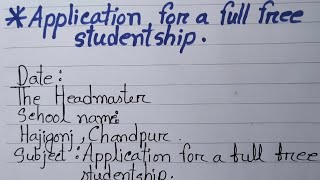 *Application for a full free
studentship.
Date:
The Headmaster
School name:
Hajigonj, Chandpur.
Subject: Application for a full free
studentship.